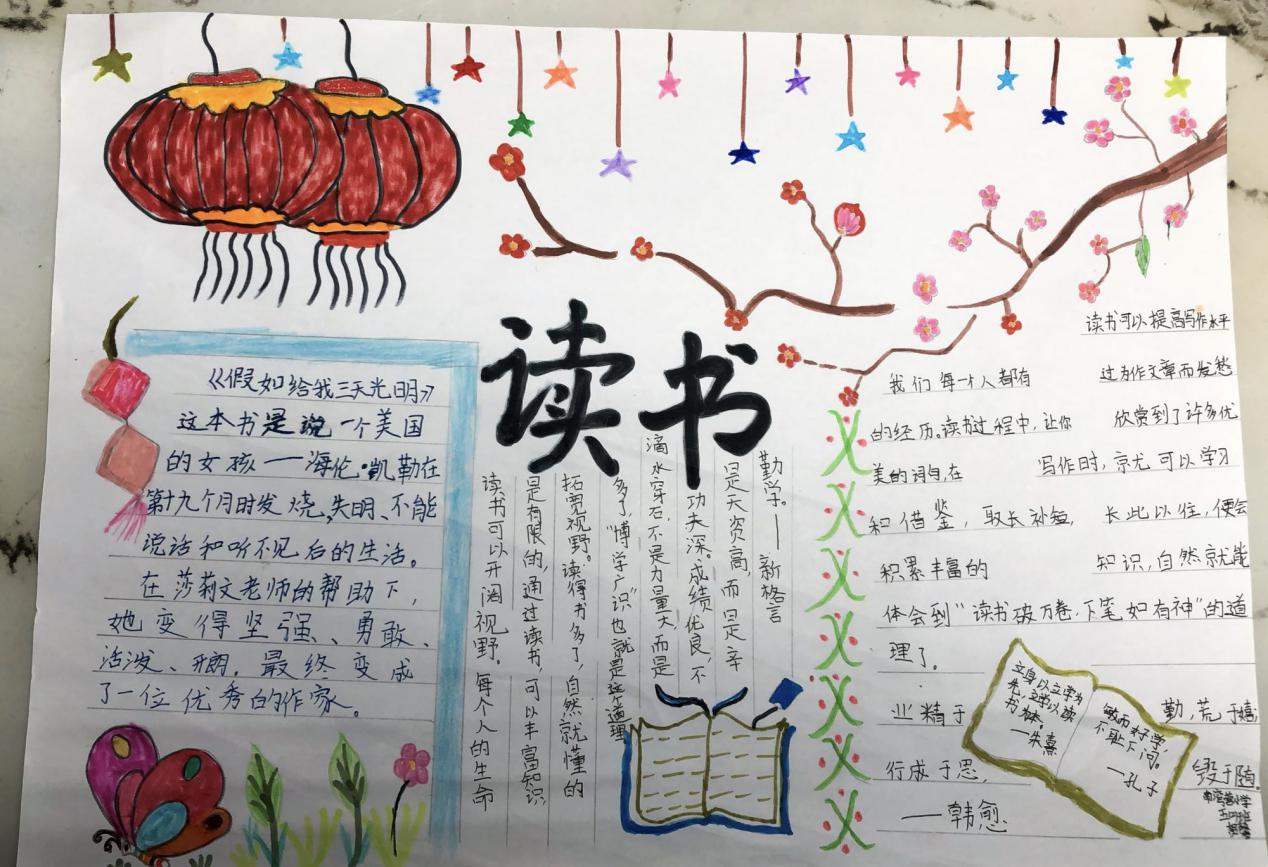 读书
《假如给我三天光明》
这本书是说一个美国
的女孩——海伦·凯勒在
第十九个月时发烧,失明、不能
说话和听不见后的生活。
在莎莉文老师的帮助下,
她变得坚强、勇敢、
活泼、开朗。最终变成
了一位优秀的作家。
读书可以开阔视野。每个人的生命
是有限的,通过读书,可以丰富知识
拓宽视野。读得书多了,自然就懂的
多了,“博学广识”也就是这个道理
滴水穿石,不是力量大,而是
功夫深。成绩优良,不
是天资高,而是辛
勤学。——新格言
读书可以提高写作水平
我们每一个人都有 过为作文章而发愁
的经历。读书过程中,让你 欣赏到了许多优
美的词句,在 写作时,京尤可以学习
和借鉴,取长补短, 长此以往,便会
积累丰富的 知识,自然就能
体会到“读书破万卷·下笔如有神”的道
理了。
业精于 勤,荒于嬉;
行成于思, 毁于随。
——韩愈
文身以立学为
先,立学以读
书为本。
—朱熹
敏而好学,
不耻下问。
—孔子